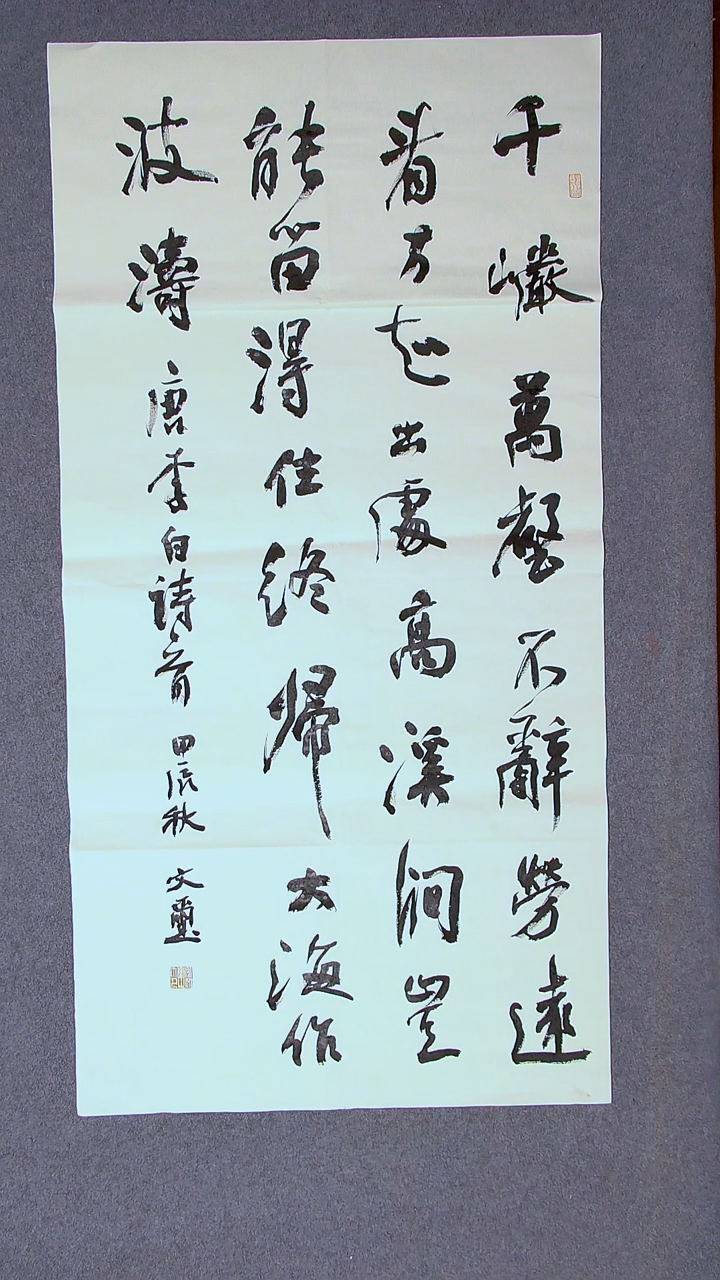 千巖萬壑不辭勞遠
看方知出處高溪澗豈
能留得住終歸大海作
波濤 唐李白詩一首 甲辰秋 文璽